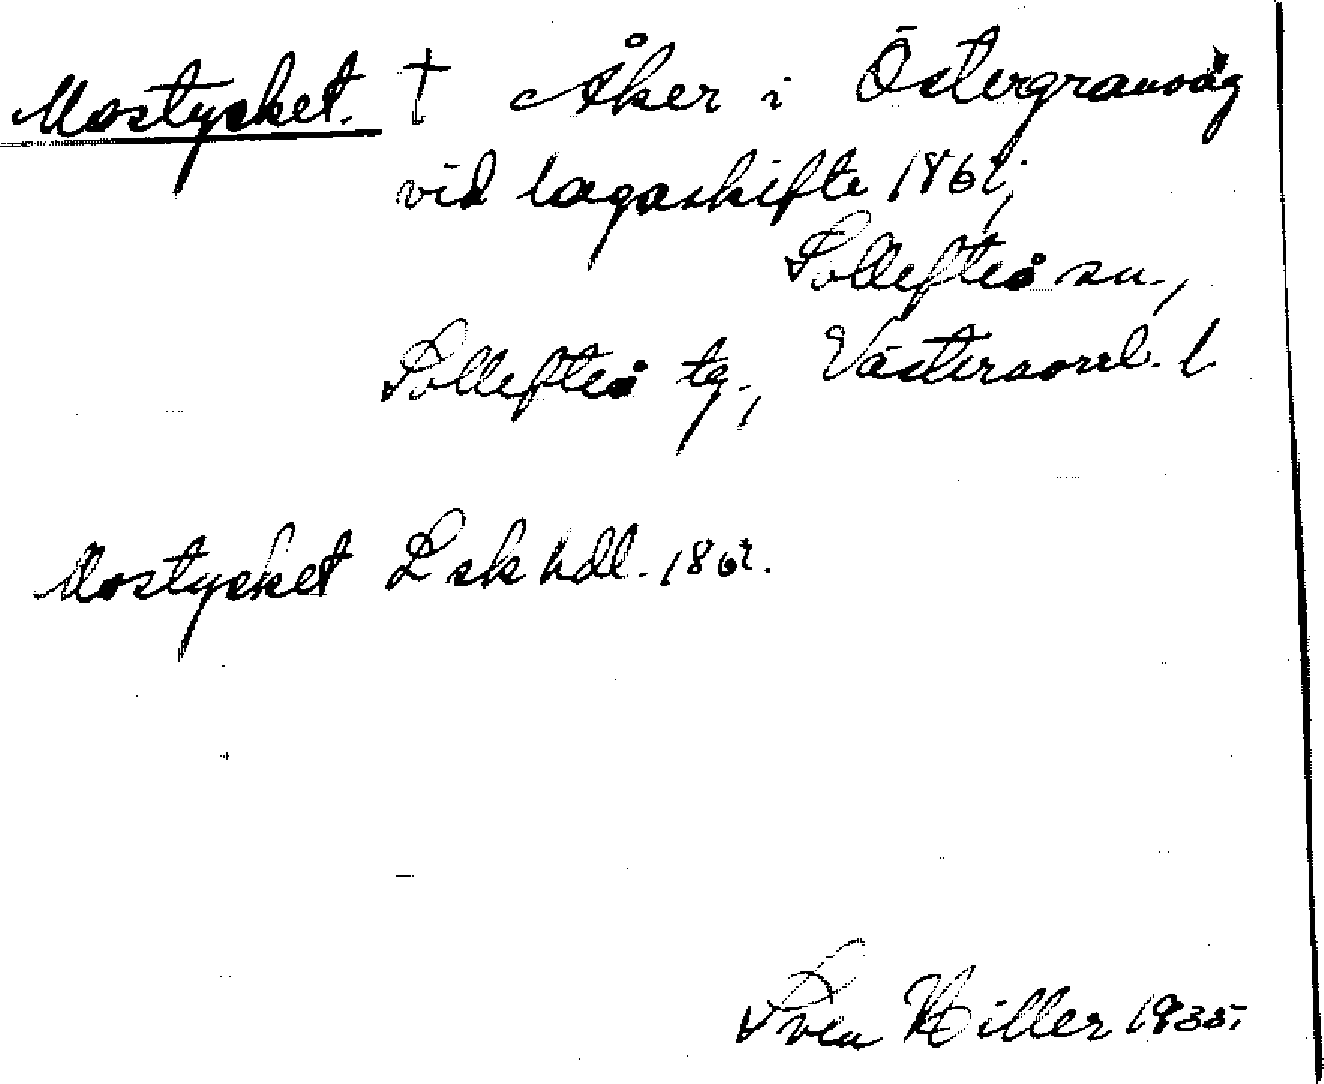 Mostycket. † Åker i Östergranvåg
vid lagaskifte 1862;
Sollefteå sn.,
Sollefteå tg., Västernorrl. l.
Mostycket Lsk hdl. 1862.
Sven Hiller 1935.